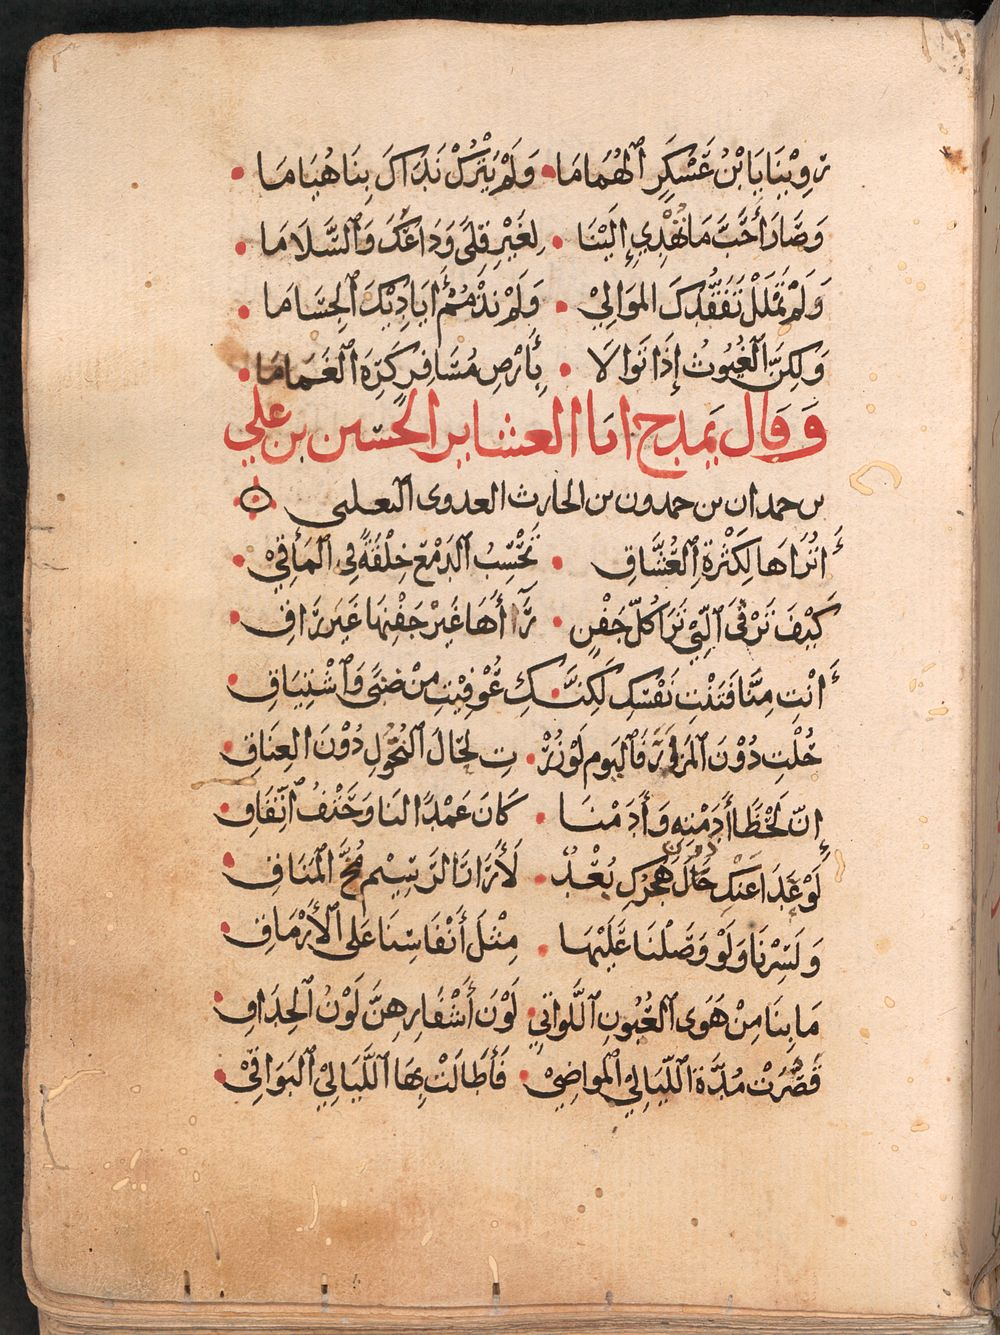 رَوِيْنَا يَا ابْنَ عَسْكَرٍ ٱلْهُمَامَا • وَلَمْ يَتْرُكْ نَدَاكَ بِنَا هُيَامَا •
وَصَارَ أَحَبَّ مَا تُهْدِي إِلَيْنَا • لِغَيْرِ قِلًى وَدَاعَكَ وَٱلسَّلَامَا •
وَلَمْ نَمْلَلْ تَفَقُّدَكَ المَوَالِيْ • وَلَمْ نَذْمُمْ أَيَادِيَكَ ٱلْجِسَامَا •
وَلَكِنَّ ٱلْغُيُوثَ إِذَا تَوَالَا • بِأَرْضِ مُسَافِرٍ كَرِهَ ٱلْغَمَامَا •
وَقَالَ يَمدح ابا العشاير الحسَين بن علي
بن حمدان بن حمدون بن الحارث العدوى التعلبى
أَتُرَاهَا لِكَثْرَةِ ٱلْعُشَّاقِ • تَحْسِبُ ٱلدَمْعَ خِلْقَةً فِى ٱلْمَأَقِيْ •
كَيْفَ تَرْثِى ٱلَّتِيْ تَرَا كُلَّ جَفْنٍ • رَاأَهَا غَيْرَ جَفْنِهَا غَيْرَ رَاقِ •
أَنْتِ مِنَّا فَتَنْتِ نَفْسَكِ لَكِنَّكِ عُوْفِيْتِ مِنْ ضَنًى وَٱشْتِيَاقِ •
حُلْتِ دُوْنَ ٱلمَزَارِ فَٱليَوْمَ لَوْ زُرْ • تِ لَحَالَ ٱلنُّحُوْلُ دُوْنَ العِنَاقِ •
إِنَّ لَحْظًا أَدَمْتِهِ وَأَدَمْنَا • كَانَ عَمْدًا لنَا وَحَتْفَ ٱتِّفَاقِ •
لَوْ عَدَا عَنْكِ حَالَ هَجْرِكِ بُعْدٌ • لَأَرَارَ الرَّسِيْمُ مُخَّ ٱلْمَنَاقِ •
دون
وَلَسِرْنَا وَلَوْ وَصَلْنَا عَلَيْهَا • مِثْلَ أَنْفَاسِنَا عَلَى ٱلْأَرْمَاقِ •
مَا بِنَا مِنْ هَوَى ٱلْعُيُونِ ٱللَّوَاتِي • لَوْنُ أَشْفَارِهِنَّ لَوْنُ ٱلْحِدَاقِ •
قَصَّرَتْ مُدَّةَ ٱللَّيَالِيْ ٱلْمَوَاضِيْ • فَأَطَالَتْ بِهَا ٱللَّيَالِيْ ٱلْبَوَاقِيْ •